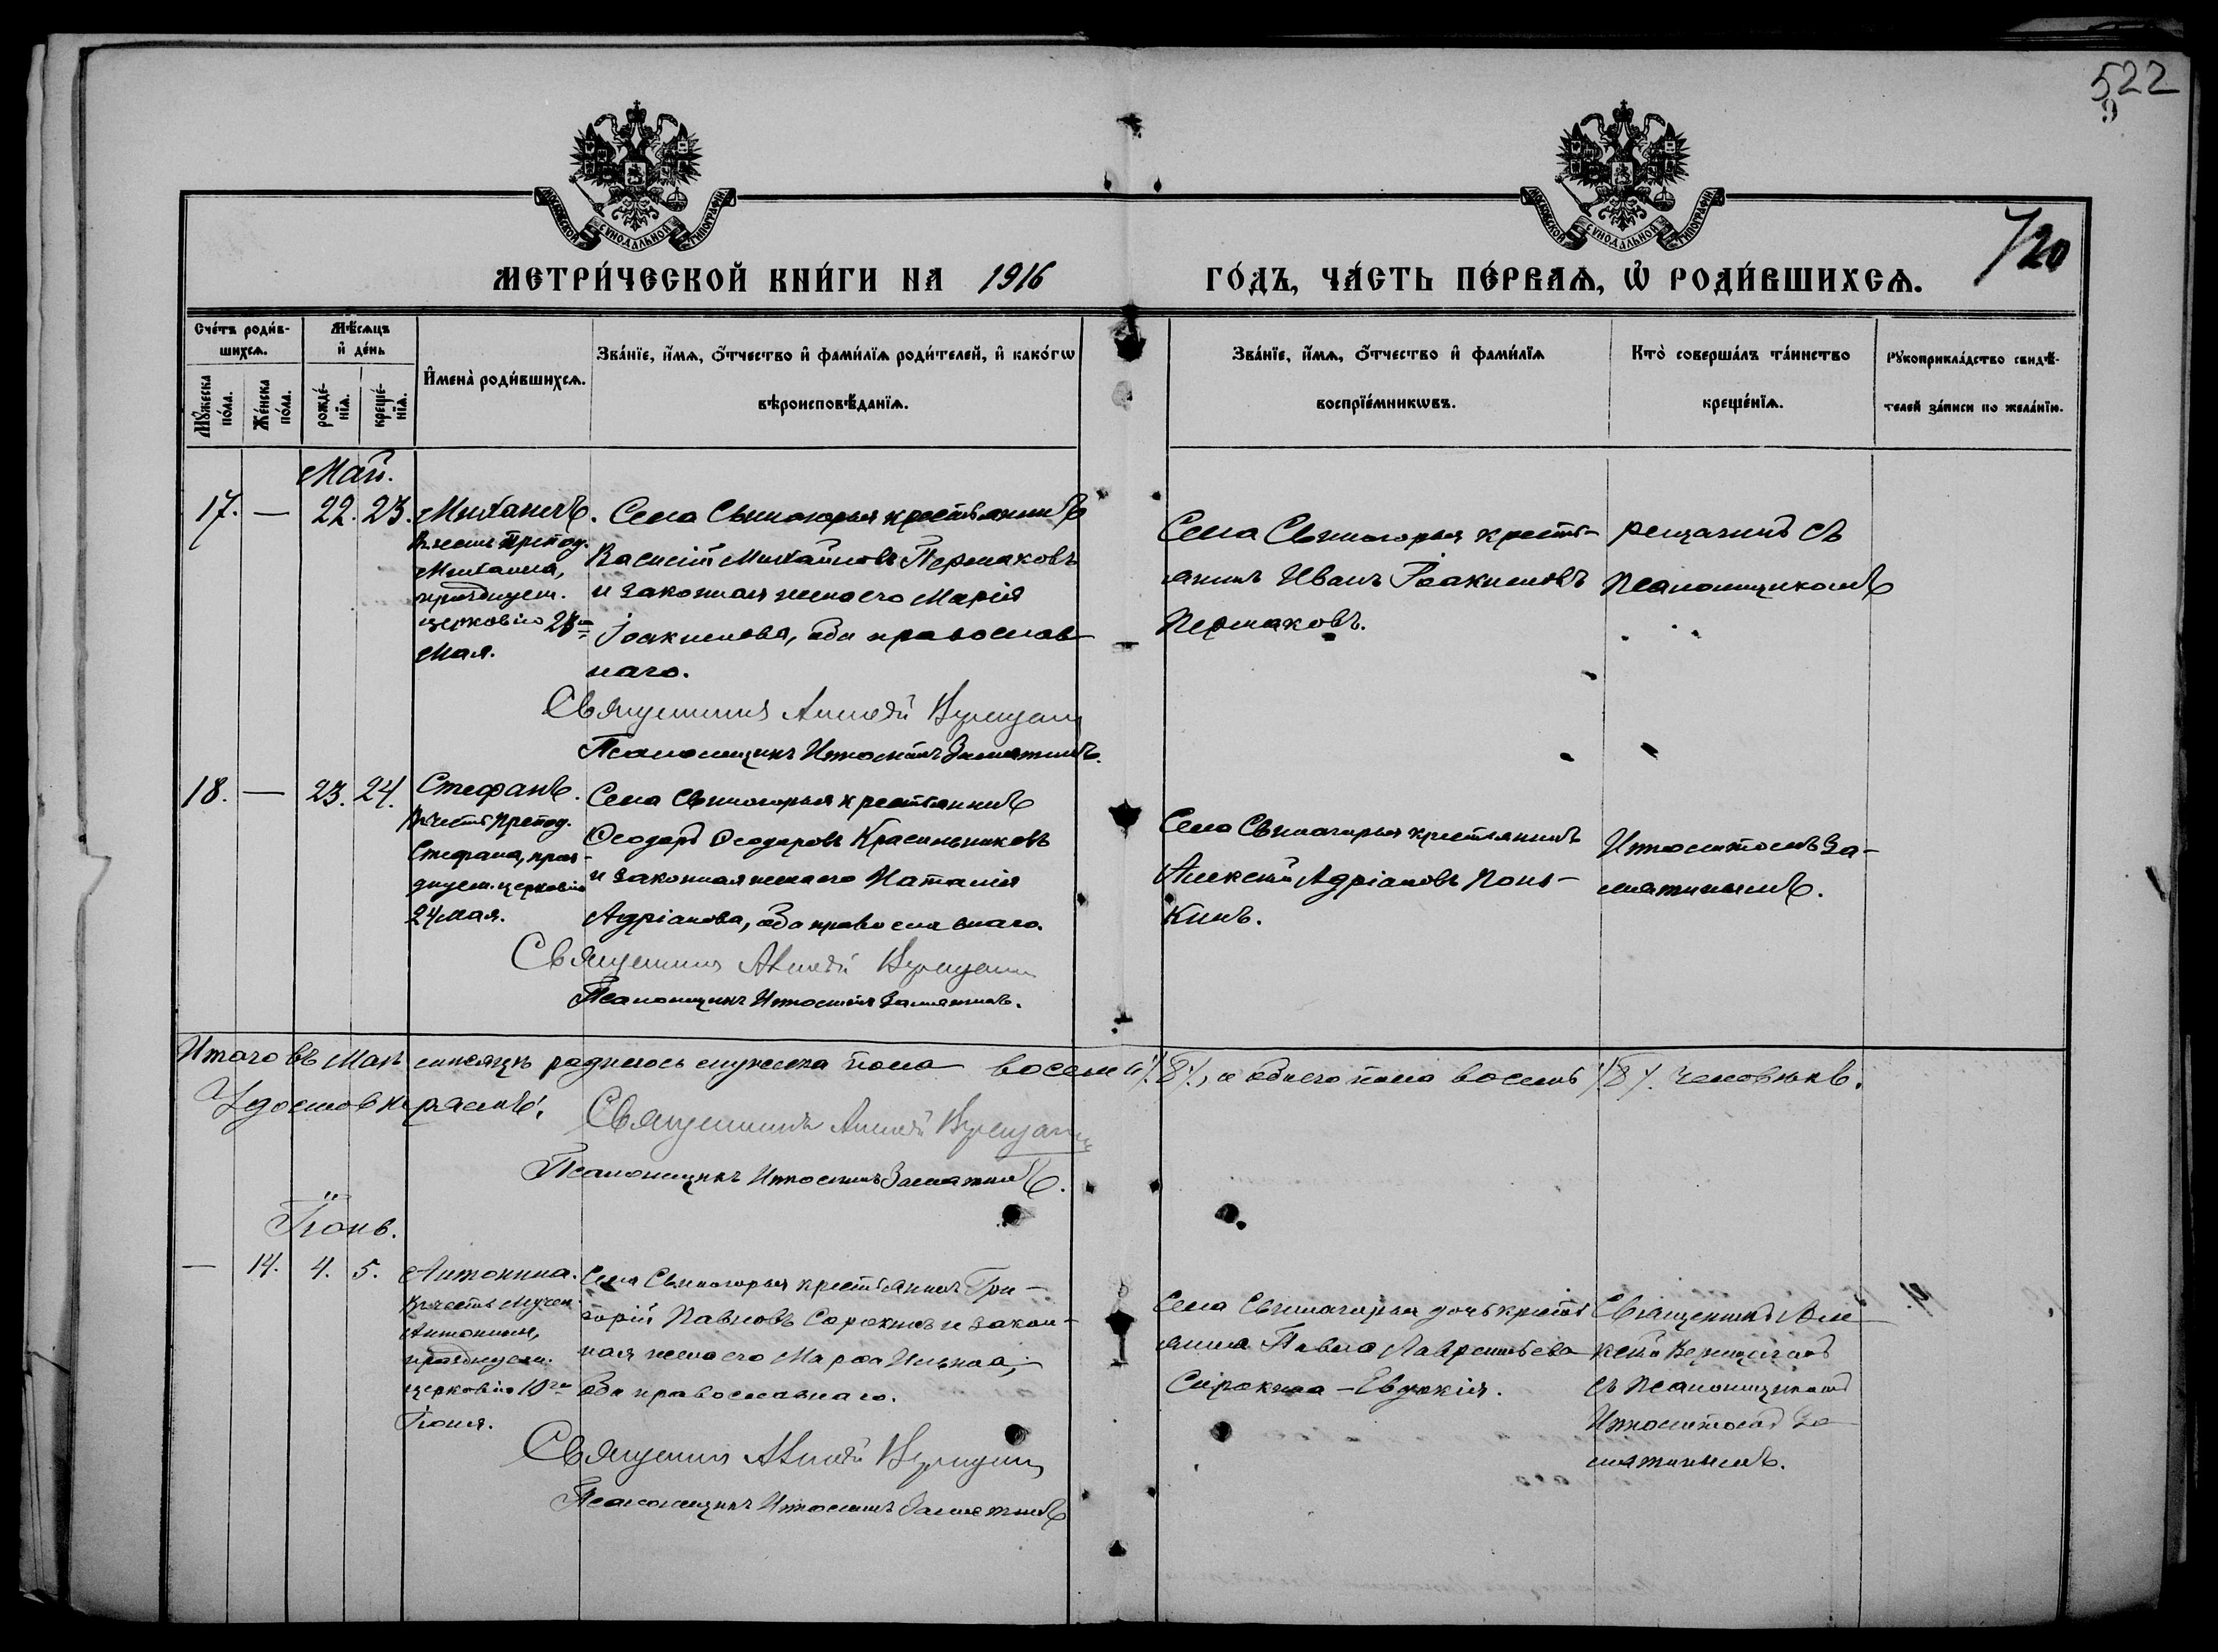 522
720
МОСКОВСКОЙ СѴНОДАЛЬНОЙ ТИПОГРАФІИ
МОСКОВСКОЙ СѴНОДАЛЬНОЙ ТИПОГРАФІИ
МЕТРИ́ЧЕСКОЙ КНИ́ГИ НА 1916 ГО́ДЪ, ЧА́СТЬ ПЕ́РВАѦ, Ѿ РОДИ́ВШИХСѦ.
Сче́тъ роди́в-
шихсѧ.
Мꙋ́жеска по́ла.
Же́нска по́ла.
Мѣ́сѧцъ
и҆ де́нь
рожде́-
нїѧ.
креще́-
нїѧ.
И҆мена̀ роди́вшихсѧ.
Зва́нїе, и҆́мѧ, ѻ҆́тчество и҆ фами́лїѧ роди́телей, и҆ како́гѡ
вѣроисповѣ́данїѧ.
Зва́нїе, и҆́мѧ, ѻ҆́тчество и҆ фами́лїѧ
воспрїе́мникѡвъ.
Кто̀ соверша́лъ та́инство
креще́нїѧ.
Рꙋкоприкла́дство свидѣ́-
телей за́писи по жела́нїю.
Май.
17. — 22. 23. Михаилъ.
Въ честь препод.
Михаила,
празднуем.
церковію 23го
Мая.
Села Свиногорья крестьянинъ
Василій Михайловъ Пермаковъ
и законная жена его Марія
Іоакимова, оба православ-
наго.
Священникъ Алексѣй
Псаломщикъ Ипполитъ Замятинъ.
Села Свиногорья кресть-
янинъ Иванъ Іоакимовъ
Пермаковъ.
съ
псаломщикомъ
18. — 23. 24. Стефанъ.
Въ честь препод.
Стефана, праз-
днуем. церковію
24 мая.
Села Свиногорья крестьянинъ
Ѳеодоръ Ѳеодоровъ Красильниковъ
и законная жена его Наталія
Адріанова, оба православнаго.
Священникъ Алексѣй
Псаломщикъ Ипполитъ Замятинъ.
Села Свиногорья крестьянинъ
Алексѣй Адріановъ
кинъ.
Ипполитомъ За-
мятинымъ.
Итого въ Маѣ мѣсяцѣ родилось мужеска пола восемь /8/, а обоего пола восемь /8/ человѣкъ.
Удостовѣряемъ:
Священникъ Алексѣй
Псаломщикъ Ипполитъ Замятинъ.
Іюнь.
— 14. 4. 5. Антонина.
Въ честь мучен.
Антонины,
празднуем.
церковію 10го
Іюня.
Села Свиногорья крестьянинъ Гри-
горій Павловъ Сорокинъ и закон-
ная жена его Марѳа
оба православнаго.
Священникъ Алексѣй
Псаломщикъ Ипполитъ Замятинъ
Села Свиногорья дочь кресть
янина Павла Лаврентьева
Сорокина - Евдокія.
Священникъ Але-
ксѣй
съ псаломщикомъ
Ипполитомъ За-
мятинымъ.